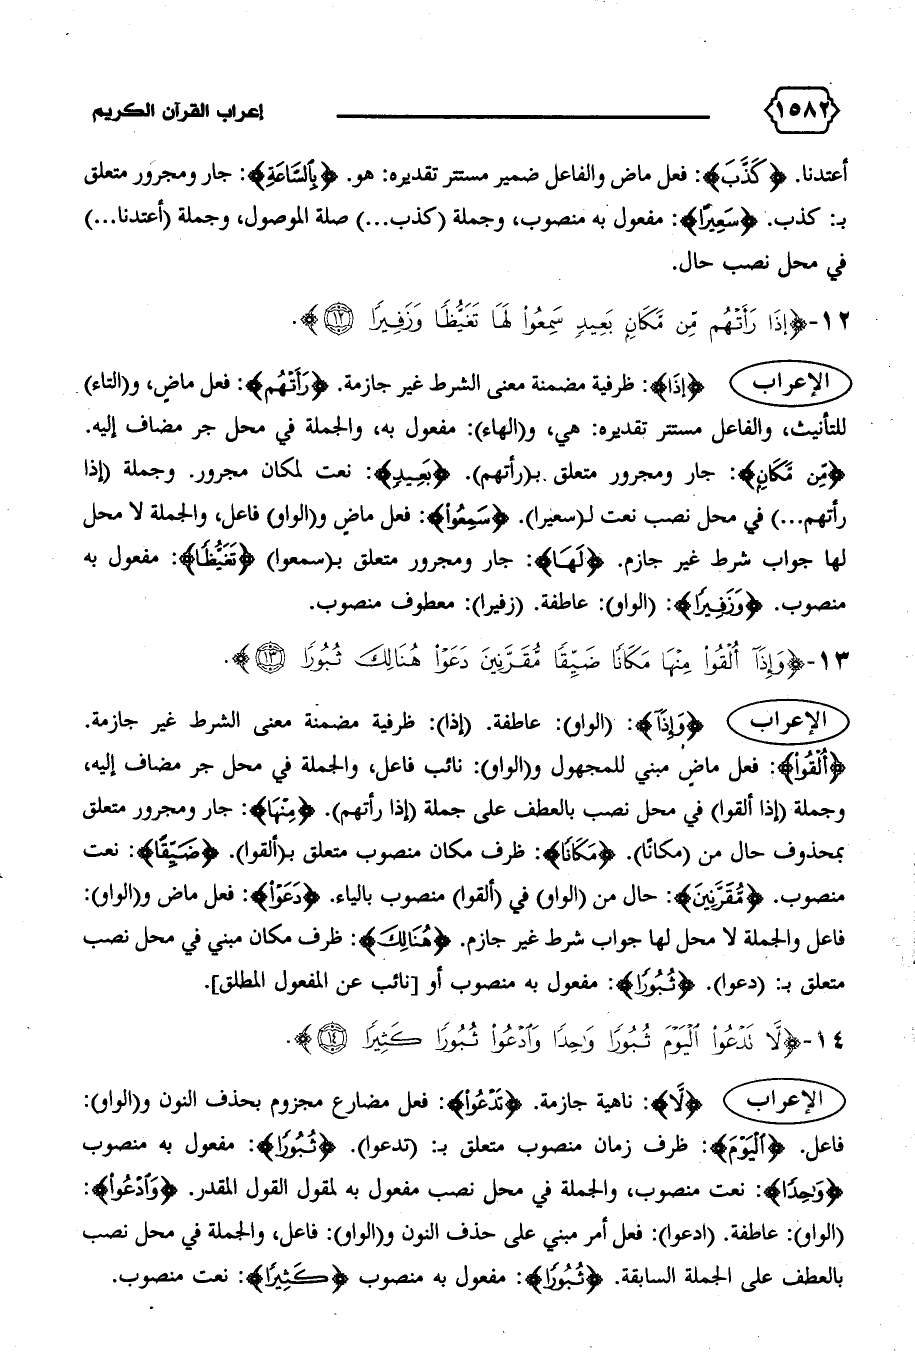 ١٥٨٢ إعراب القرآن الكريم
أعتدنا. ﴿كَذَّبَ﴾: فعل ماض والفاعل ضمير مستتر تقديره: هو. ﴿بِٱلسَّاعَةِ﴾: جار ومجرور متعلق
بـ: كذب. ﴿سَعِيرًا﴾: مفعول به منصوب، وجملة (كذب...) صلة الموصول، وجملة (أعتدنا...)
في محل نصب حال.
١٢-﴿إِذَا رَأَتْهُم مِّن مَّكَانٍ بَعِيدٍ سَمِعُوا۟ لَهَا تَغَيُّظًا وَزَفِيرًا ۝١٢﴾.
الإعراب ﴿إِذَا﴾: ظرفية مضمنة معنى الشرط غير جازمة. ﴿رَأَتْهُم﴾: فعل ماضٍ، و(التاء)
للتأنيث، والفاعل مستتر تقديره: هي، و(الهاء): مفعول به، والجملة في محل جر مضاف إليه.
﴿مِّن مَّكَانٍ﴾: جار ومجرور متعلق بـ(رأتهم). ﴿بَعِيدٍ﴾: نعت لمكان مجرور. وجملة (إذا
رأتهم...) في محل نصب نعت لـ(سعيرا). ﴿سَمِعُوا۟﴾: فعل ماضٍ و(الواو) فاعل، والجملة لا محل
لها جواب شرط غير جازم. ﴿لَهَا﴾: جار ومجرور متعلق بـ(سمعوا) ﴿تَغَيُّظًا﴾: مفعول به
منصوب. ﴿وَزَفِيرًا﴾: (الواو): عاطفة. (زفيرا): معطوف منصوب.
١٣-﴿وَإِذَآ أُلْقُوا۟ مِنْهَا مَكَانًا ضَيِّقًا مُّقَرَّنِينَ دَعَوْا۟ هُنَالِكَ ثُبُورًا ۝١٣﴾.
الإعراب ﴿وَإِذَآ﴾: (الواو): عاطفة. (إذا): ظرفية مضمنة معنى الشرط غير جازمة.
﴿أُلْقُوا۟﴾: فعل ماضٍ مبني للمجهول و(الواو): نائب فاعل، والجملة في محل جر مضاف إليه،
وجملة (إذا ألقوا) في محل نصب بالعطف على جملة (إذا رأتهم). ﴿مِنْهَا﴾: جار ومجرور متعلق
بمحذوف حال من (مكانًا). ﴿مَكَانًا﴾: ظرف مكان منصوب متعلق بـ(ألقوا). ﴿ضَيِّقًا﴾: نعت
منصوب. ﴿مُّقَرَّنِينَ﴾: حال من (الواو) في (ألقوا) منصوب بالياء. ﴿دَعَوْا۟﴾: فعل ماض و(الواو):
فاعل والجملة لا محل لها جواب شرط غير جازم. ﴿هُنَالِكَ﴾: ظرف مكان مبني في محل نصب
متعلق بـ: (دعوا). ﴿ثُبُورًا﴾: مفعول به منصوب أو [نائب عن المفعول المطلق].
١٤-﴿لَّا تَدْعُوا۟ ٱلْيَوْمَ ثُبُورًا وَٰحِدًا وَٱدْعُوا۟ ثُبُورًا كَثِيرًا ۝١٤﴾.
الإعراب ﴿لَّا﴾: ناهية جازمة. ﴿تَدْعُوا۟﴾: فعل مضارع مجزوم بحذف النون و(الواو):
فاعل. ﴿ٱلْيَوْمَ﴾: ظرف زمان منصوب متعلق بـ: (تدعوا). ﴿ثُبُورًا﴾: مفعول به منصوب
﴿وَٰحِدًا﴾: نعت منصوب، والجملة في محل نصب مفعول به لمقول القول المقدر. ﴿وَٱدْعُوا۟﴾:
(الواو): عاطفة. (ادعوا): فعل أمر مبني على حذف النون و(الواو): فاعل، والجملة في محل نصب
بالعطف على الجملة السابقة. ﴿ثُبُورًا﴾: مفعول به منصوب ﴿كَثِيرًا﴾: نعت منصوب.